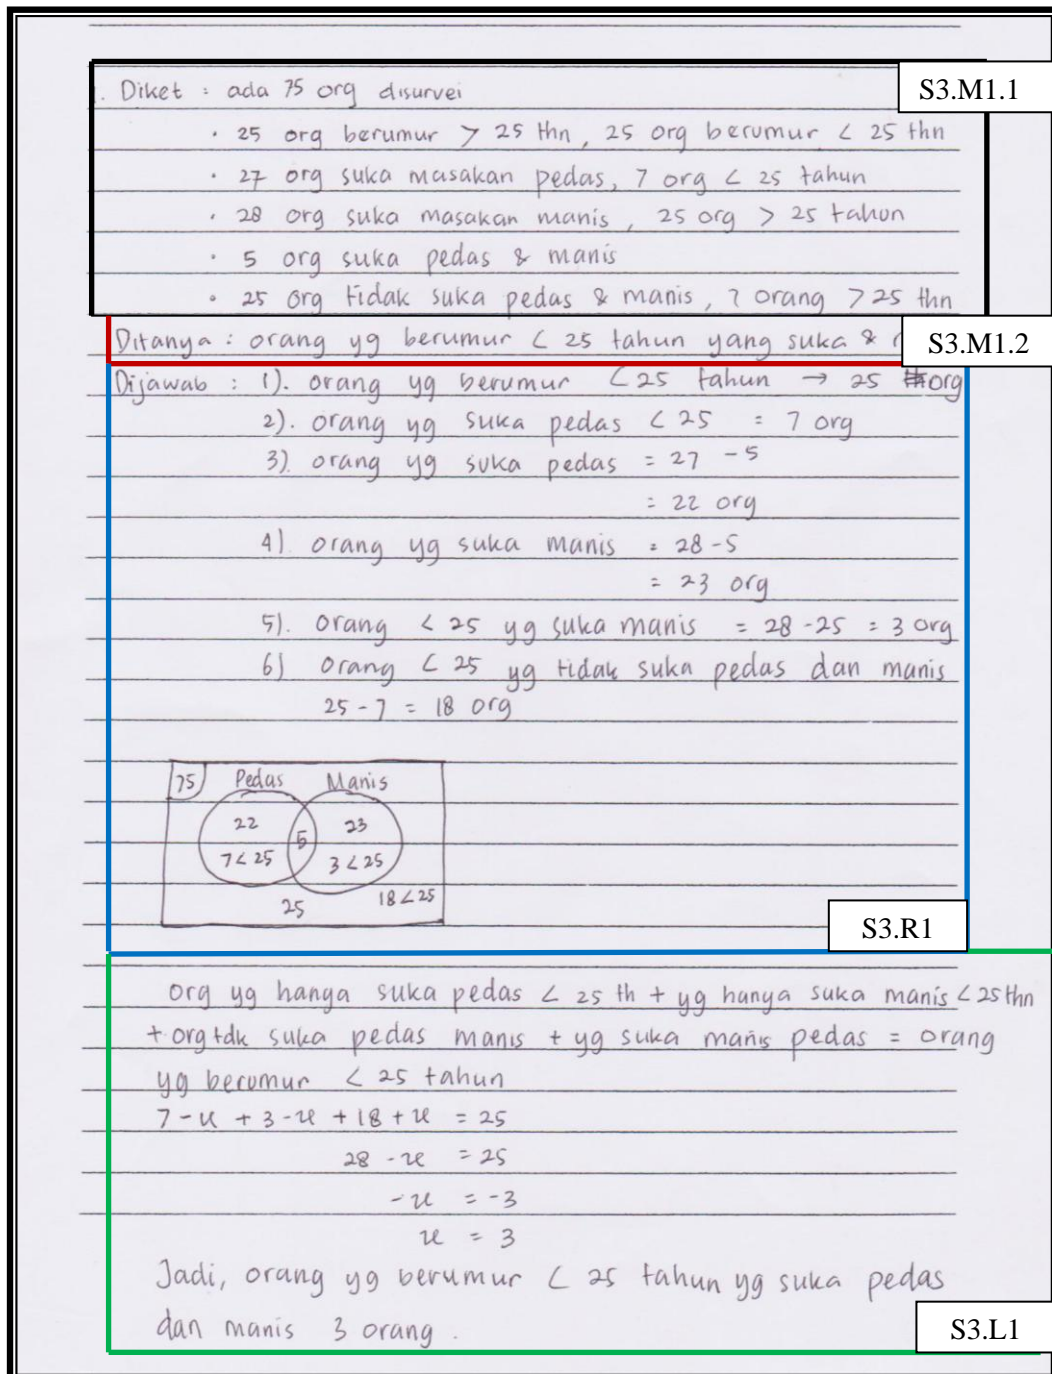 . Diket : ada 75 org disurvei
S3.M1.1
• 25 org berumur > 25 thn, 25 org berumur < 25 thn
• 27 org suka masakan pedas, 7 org < 25 tahun
• 28 org suka masakan manis, 25 org > 25 tahun
• 5 org suka pedas & manis
• 25 org tidak suka pedas & manis, 7 orang > 25 thn
Ditanya : orang yg berumur < 25 tahun yang suka &
S3.M1.2
Dijawab : 1). orang yg berumur < 25 tahun → 25 org
2). orang yg suka pedas < 25 = 7 org
3). orang yg suka pedas = 27 - 5
= 22 org
4). orang yg suka manis = 28 - 5
= 23 org
5). orang < 25 yg suka manis = 28 - 25 = 3 org
6) orang < 25 yg tidak suka pedas dan manis
25 - 7 = 18 org
75 Pedas Manis
22 5 23
7 < 25 3 < 25
25 18 < 25
S3.R1
org yg hanya suka pedas < 25 th + yg hanya suka manis < 25 thn
+ org tdk suka pedas manis + yg suka manis pedas = orang
yg berumur < 25 tahun
7 - x + 3 - x + 18 + x = 25
28 - x = 25
- x = -3
x = 3
Jadi, orang yg berumur < 25 tahun yg suka pedas
dan manis 3 orang .
S3.L1